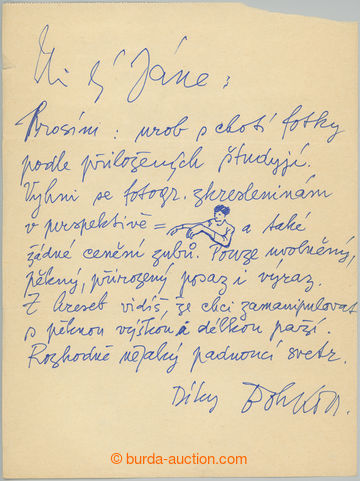 Milý Jáne:
Prosím: urob s chotí fotky
podle přiložených študyjí.
Vyhni se fotogr. zkresleninám
v perspektivě = a také
žádné cenění zubů. Pouze uvolněný,
pěkný, přirozený posaz i výraz.
Z kreseb vidíš, že chci zamanipulovat
s pěknou výškou a délkou paží.
Rozhodně nějaký padnoucí svetr.
Díky
© burda-auction.com